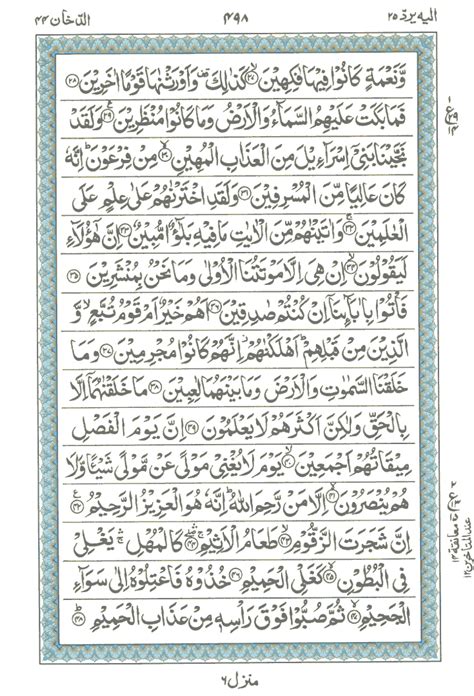 الدخان ٤٤ ٤٩٨ اليه يرد ٢٥
وَّنَعْمَةٍ كَانُوْا فِيْهَا فٰكِهِيْنَ ۙ﴿۲۷﴾ كَذٰلِكَ ۫ وَاَوْرَثْنٰهَا قَوْمًا اٰخَرِيْنَ ﴿۲۸﴾
فَمَا بَكَتْ عَلَيْهِمُ السَّمَآءُ وَالْاَرْضُ وَمَا كَانُوْا مُنْظَرِيْنَ ﴿۲۹﴾ وَلَقَدْ
نَجَّيْنَا بَنِيْٓ اِسْرَآءِيْلَ مِنَ الْعَذَابِ الْمُهِيْنِ ۙ﴿۳۰﴾ مِنْ فِرْعَوْنَ ؕ اِنَّهٗ
كَانَ عَالِيًا مِّنَ الْمُسْرِفِيْنَ ﴿۳۱﴾ وَلَقَدِ اخْتَرْنٰهُمْ عَلٰى عِلْمٍ عَلَى
الْعٰلَمِيْنَ ۚ﴿۳۲﴾ وَاٰتَيْنٰهُمْ مِّنَ الْاٰيٰتِ مَا فِيْهِ بَلٰٓؤٌا مُّبِيْنٌ ﴿۳۳﴾ اِنَّ هٰٓؤُلَآءِ
لَيَقُوْلُوْنَ ۙ﴿۳۴﴾ اِنْ هِيَ اِلَّا مَوْتَتُنَا الْاُوْلٰى وَمَا نَحْنُ بِمُنْشَرِيْنَ ﴿۳۵﴾
فَاْتُوْا بِاٰبَآئِنَاۤ اِنْ كُنْتُمْ صٰدِقِيْنَ ﴿۳۶﴾ اَهُمْ خَيْرٌ اَمْ قَوْمُ تُبَّعٍ ۙ وَّ
الَّذِيْنَ مِنْ قَبْلِهِمْ ؕ اَهْلَكْنٰهُمْ ؗ اِنَّهُمْ كَانُوْا مُجْرِمِيْنَ ﴿۳۷﴾ وَمَا
خَلَقْنَا السَّمٰوٰتِ وَالْاَرْضَ وَمَا بَيْنَهُمَا لٰعِبِيْنَ ﴿۳۸﴾ مَا خَلَقْنٰهُمَاۤ اِلَّا
بِالْحَقِّ وَلٰكِنَّ اَكْثَرَهُمْ لَا يَعْلَمُوْنَ ﴿۳۹﴾ اِنَّ يَوْمَ الْفَصْلِ
مِيْقَاتُهُمْ اَجْمَعِيْنَ ۙ﴿۴۰﴾ يَوْمَ لَا يُغْنِيْ مَوْلًى عَنْ مَّوْلًى شَيْئًا وَّلَا
هُمْ يُنْصَرُوْنَ ۙ﴿۴۱﴾ اِلَّا مَنْ رَّحِمَ اللّٰهُ ؕ اِنَّهٗ هُوَ الْعَزِيْزُ الرَّحِيْمُ ﴿۴۲﴾
اِنَّ شَجَرَتَ الزَّقُّوْمِ ۙ﴿۴۳﴾ طَعَامُ الْاَثِيْمِ ﴿۴۴﴾ كَالْمُهْلِ ۚ يَغْلِيْ
فِي الْبُطُوْنِ ۙ﴿۴۵﴾ كَغَلْيِ الْحَمِيْمِ ﴿۴۶﴾ خُذُوْهُ فَاعْتِلُوْهُ اِلٰى سَوَآءِ
الْجَحِيْمِ ۖ﴿۴۷﴾ ثُمَّ صُبُّوْا فَوْقَ رَاْسِهٖ مِنْ عَذَابِ الْحَمِيْمِ ؕ﴿۴۸﴾
منزل ٦